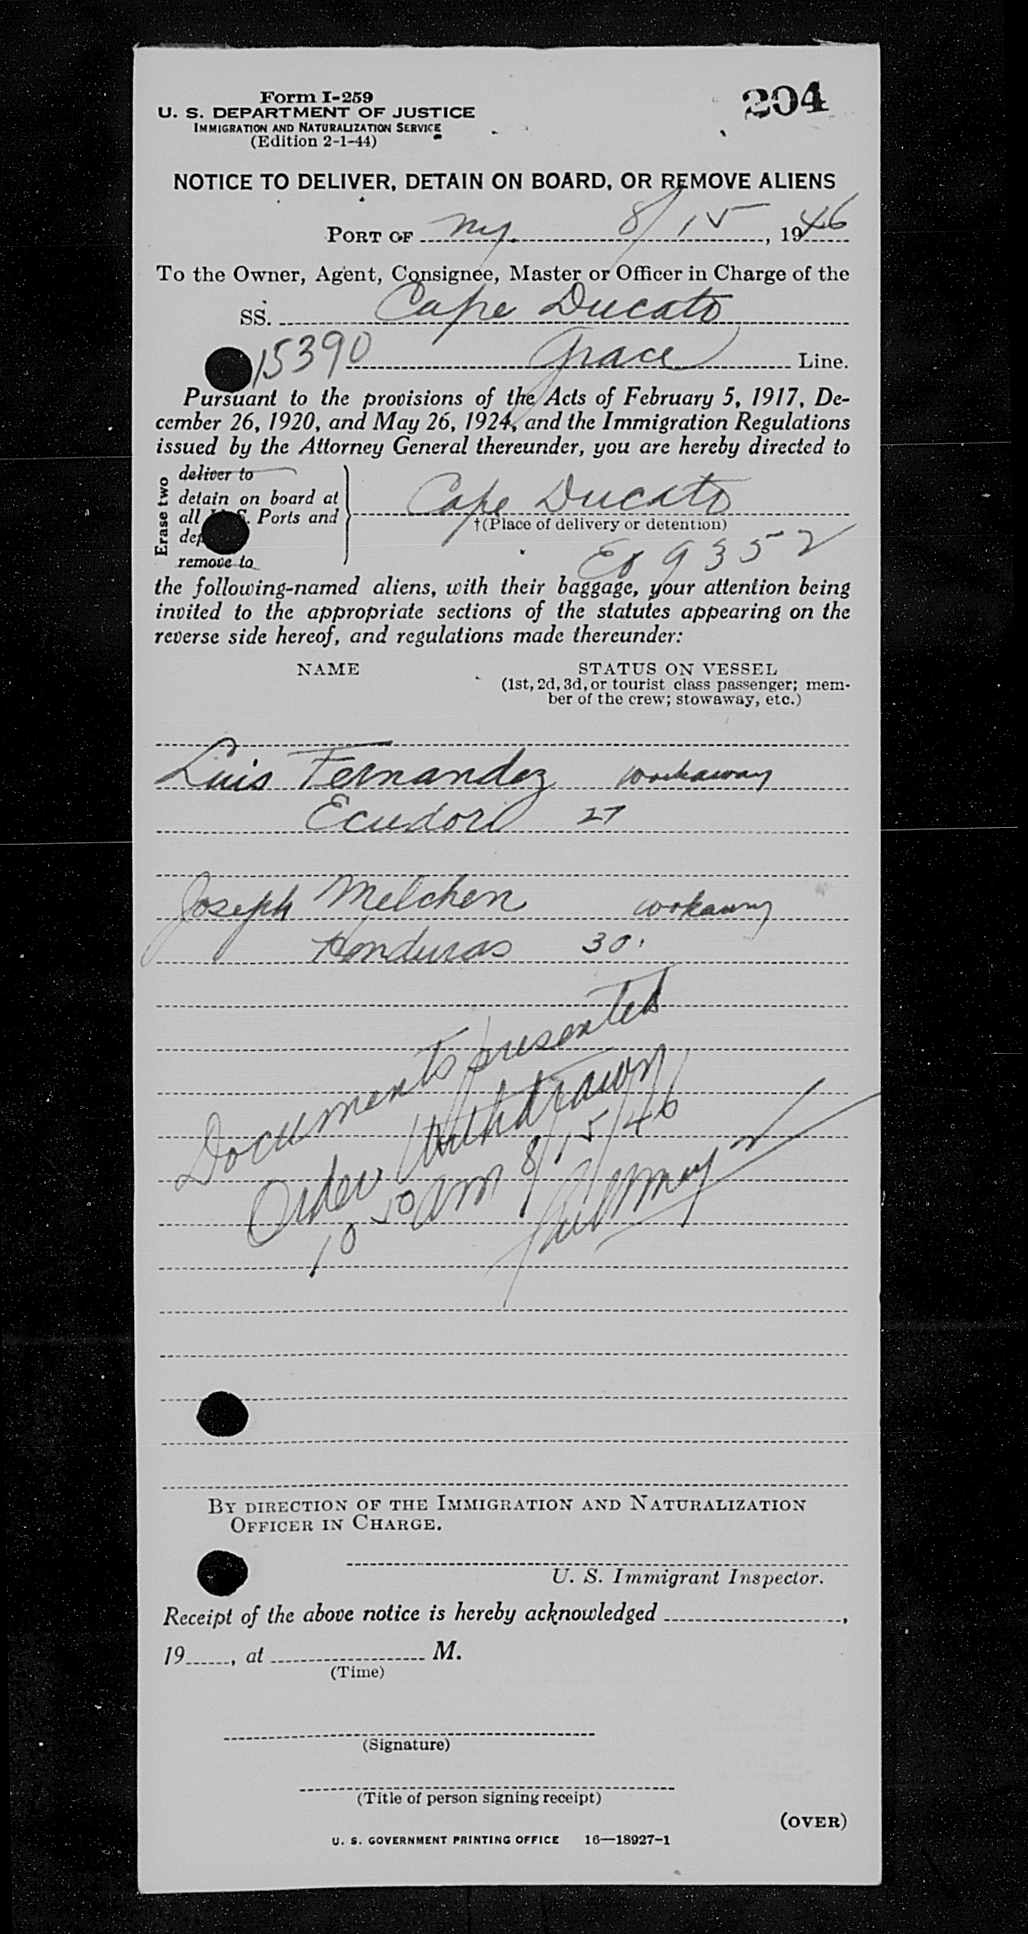 Form I-259
U. S. DEPARTMENT OF JUSTICE
IMMIGRATION AND NATURALIZATION SERVICE
(Edition 2-1-44)
204
NOTICE TO DELIVER, DETAIN ON BOARD, OR REMOVE ALIENS
PORT OF NY. 8/15, 1946
To the Owner, Agent, Consignee, Master or Officer in Charge of the
SS. Cape Ducato
15390 Grace Line.
Pursuant to the provisions of the Acts of February 5, 1917, De-
cember 26, 1920, and May 26, 1924, and the Immigration Regulations
issued by the Attorney General thereunder, you are hereby directed to
Erase two
deliver to
detain on board at
all U. S. Ports and
remove to
Cape Ducato
†(Place of delivery or detention)
9352
the following-named aliens, with their baggage, your attention being
invited to the appropriate sections of the statutes appearing on the
reverse side hereof, and regulations made thereunder:
NAME STATUS ON VESSEL
(1st, 2d, 3d, or tourist class passenger; mem-
ber of the crew; stowaway, etc.)
Luis Fernandez workaway
Ecudor 27
Joseph Melchen workaway
Honduras 30.
Documents presented
Order Withdrawn
10 50 am 8/15/46
BY DIRECTION OF THE IMMIGRATION AND NATURALIZATION
OFFICER IN CHARGE.
U. S. Immigrant Inspector.
Receipt of the above notice is hereby acknowledged ,
19 , at M.
(Time)
(Signature)
(Title of person signing receipt)
(OVER)
U. S. GOVERNMENT PRINTING OFFICE 16—18927-1